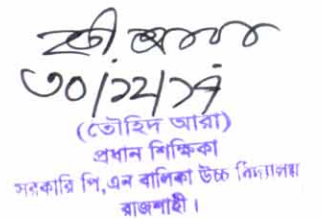 ৩০/১২/১৭
(তৌহিদ আরা)
প্রধান শিক্ষিকা
সরকারি পি,এন বালিকা উচ্চ বিদ্যালয়
রাজশাহী।